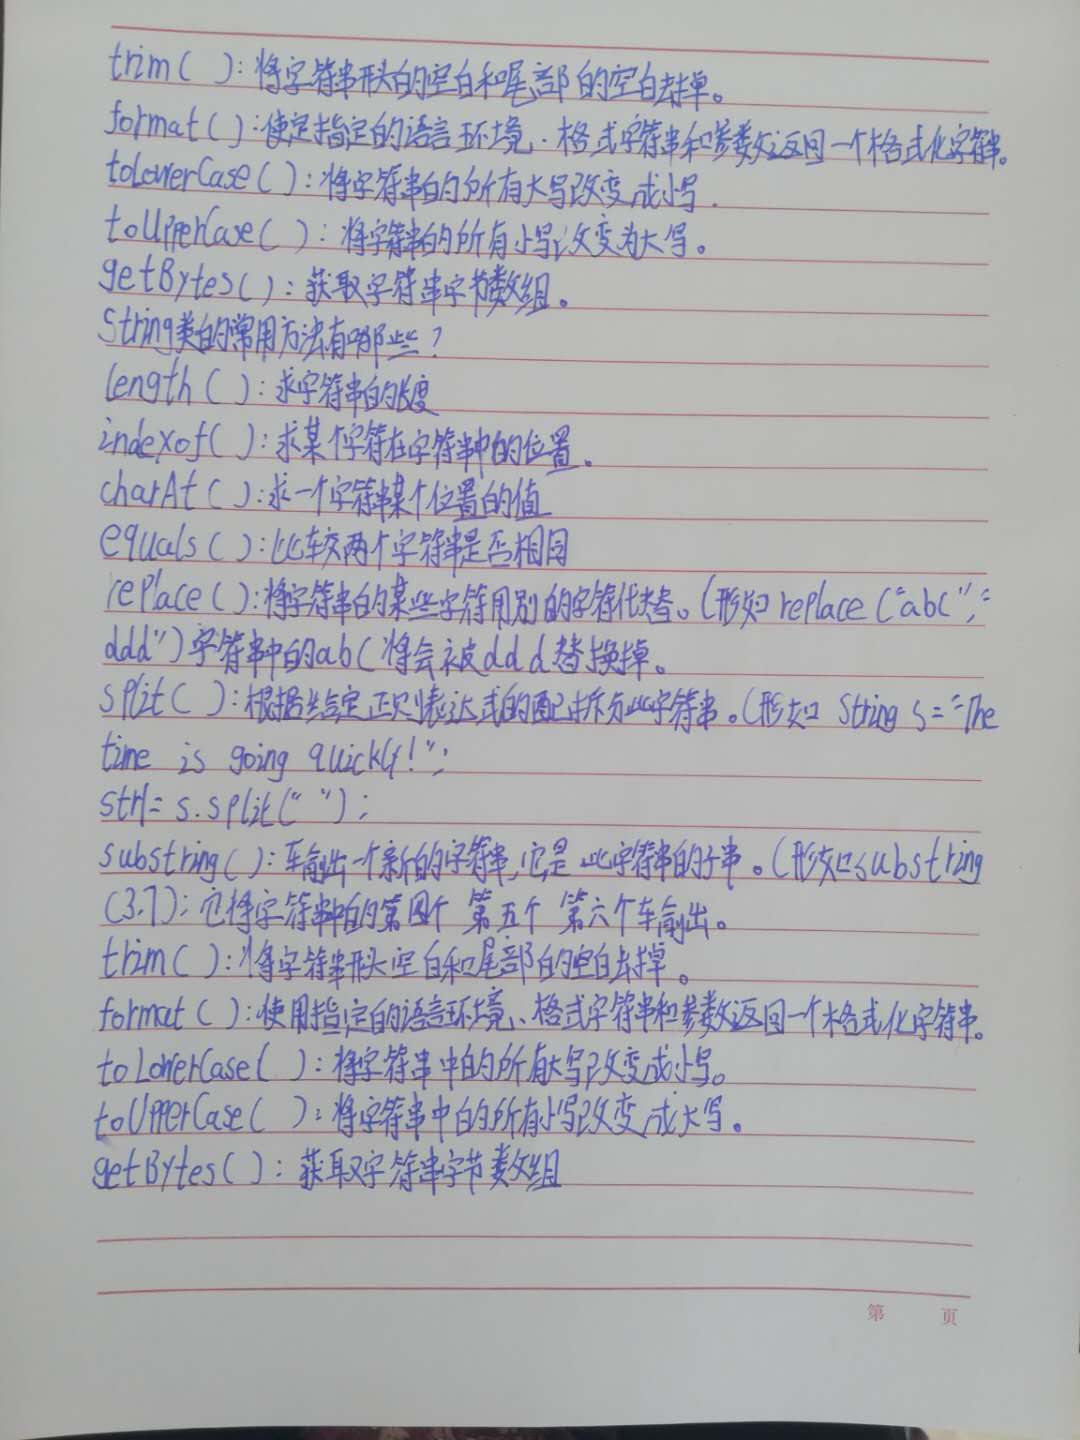 trim( ):将字符串形头的空白和尾部的空白去掉。
format( ):使定指定的语言环境.格式字符串和参数返回一个格式化字符串。
toLowerCase( ):将字符串的所有大写改变成小写.
toUpperCase( ):将字符串的所有小写改变为大写。
getBytes( ):获取字符串字节数组。
String类的常用方法有哪些?
length( ):求字符串的长度
indexof( ):求某个字符在字符串中的位置。
charAt( ):求一个字符串某个位置的值
equals( ):比较两个字符串是否相同
replace( ):将字符串的某些字符用别的字符代替。(形如replace("abc","
ddd")字符串中的abc将会被ddd替换掉。
split( ):根据给定正则表达式的匹配拆分此字符串。(形如 String s="The
time is going quickly!";
str1= s.split(" ");
substring( ):输出一个新的字符串,它是此字符串的子串。(形如substring
(3.7);它将字符串中的第四个 第五个 第六个输出。
trim( ):将字符串形头空白和尾部的空白去掉。
format( ):使用指定的语言环境、格式字符串和参数返回一个格式化字符串。
toLowerCase( ):将字符串中的所有大写改变成小写。
toUpperCase( ):将字符串中的所有小写改变成大写。
getBytes( ):获取字符串字节数组
第 页